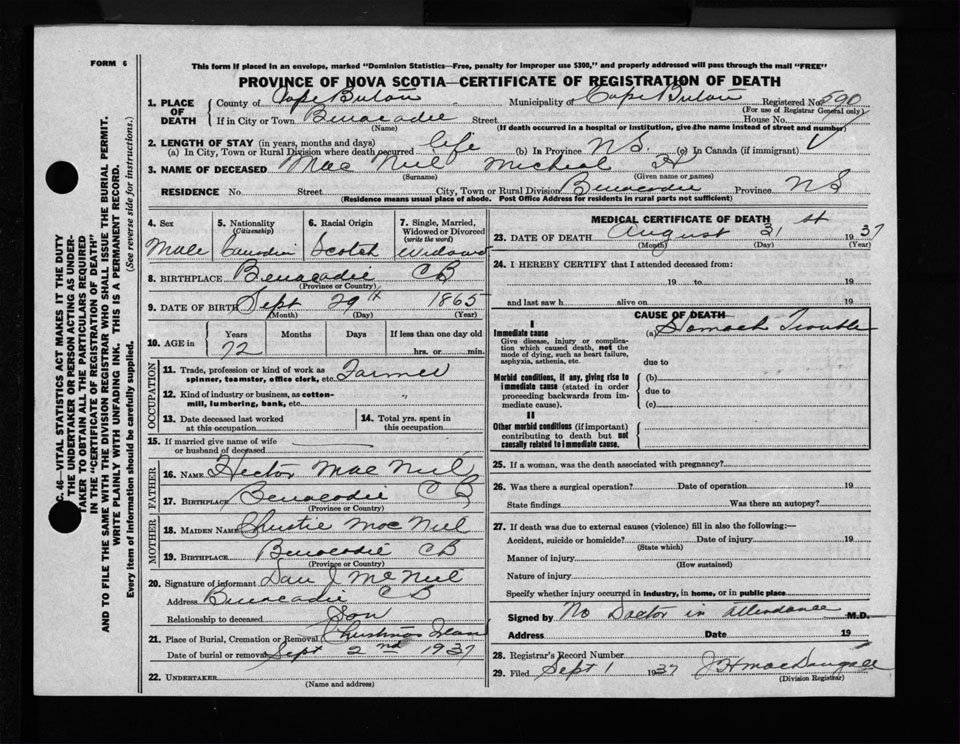 FORM 6
This form if placed in an envelope, marked "Dominion Statistics—Free, penalty for improper use $300," and properly addressed will pass through the mail "FREE"
PROVINCE OF NOVA SCOTIA—CERTIFICATE OF REGISTRATION OF DEATH
1. PLACE OF DEATH
County of Cape Breton Municipality of Cape Breton Registered No.
(For use of Registrar General only)
If in City or Town Benacadie Street House No.
(Name) (If death occurred in a hospital or institution, give the name instead of street and number)
2. LENGTH OF STAY (in years, months and days)
(a) In City, Town or Rural Division where death occurred life (b) In Province N.S. (c) In Canada (if immigrant)
3. NAME OF DECEASED Mac Neil Micheal H
(Surname) (Given name or names)
RESIDENCE No. Street City, Town or Rural Division Benacadie Province NS
(Residence means usual place of abode. Post Office Address for residents in rural parts not sufficient)
4. Sex Male
5. Nationality (Citizenship) Canadian
6. Racial Origin Scotch
7. Single, Married, Widowed or Divorced (write the word) Widowed
8. BIRTHPLACE Benacadie CB
(Province or Country)
9. DATE OF BIRTH Sept 29th 1865
(Month) (Day) (Year)
10. AGE in Years 72 Months Days If less than one day old hrs. or min.
OCCUPATION
11. Trade, profession or kind of work as spinner, teamster, office clerk, etc. Farmer
12. Kind of industry or business, as cotton-mill, lumbering, bank, etc. "
13. Date deceased last worked at this occupation
14. Total yrs. spent in this occupation
15. If married give name of wife or husband of deceased
FATHER
16. NAME Hector Mac Neil
17. BIRTHPLACE Benacadie CB
(Province or Country)
MOTHER
18. MAIDEN NAME Christie Mac Neil
19. BIRTHPLACE Benacadie CB
(Province or Country)
20. Signature of informant Dan J McNeil
Address Benacadie CB
Relationship to deceased Son
21. Place of Burial, Cremation or Removal Christmas Island
Date of burial or removal Sept 2nd 1937
22. UNDERTAKER
(Name and address)
MEDICAL CERTIFICATE OF DEATH
23. DATE OF DEATH August 31st 1937
(Month) (Day) (Year)
24. I HEREBY CERTIFY that I attended deceased from:
19 to 19
and last saw h alive on 19
CAUSE OF DEATH
I
Immediate cause (a) Stomach Trouble
Give disease, injury or complication which caused death, not the mode of dying, such as heart failure, asphyxia, asthenia, etc.
due to
Morbid conditions, if any, giving rise to immediate cause (stated in order proceeding backwards from immediate cause).
(b)
due to
(c)
II
Other morbid conditions (if important) contributing to death but not causally related to immediate cause.
25. If a woman, was the death associated with pregnancy?
26. Was there a surgical operation? Date of operation 19
State findings Was there an autopsy?
27. If death was due to external causes (violence) fill in also the following:—
Accident, suicide or homicide? Date of injury 19
(State which)
Manner of injury
(How sustained)
Nature of injury
Specify whether injury occurred in industry, in home, or in public place
Signed by No Doctor in attendance M.D.
Address Date 19
28. Registrar's Record Number
29. Filed Sept 1 1937 J H MacDougall
(Division Registrar)
C. 46—VITAL STATISTICS ACT MAKES IT THE DUTY
OF THE UNDERTAKER OR PERSON ACTING AS UNDER-
TAKER TO OBTAIN ALL THE PARTICULARS REQUIRED
IN THE "CERTIFICATE OF REGISTRATION OF DEATH"
AND TO FILE THE SAME WITH THE DIVISION REGISTRAR WHO SHALL ISSUE THE BURIAL PERMIT.
WRITE PLAINLY WITH UNFADING INK. THIS IS A PERMANENT RECORD.
Every item of information should be carefully supplied. (See reverse side for instructions.)